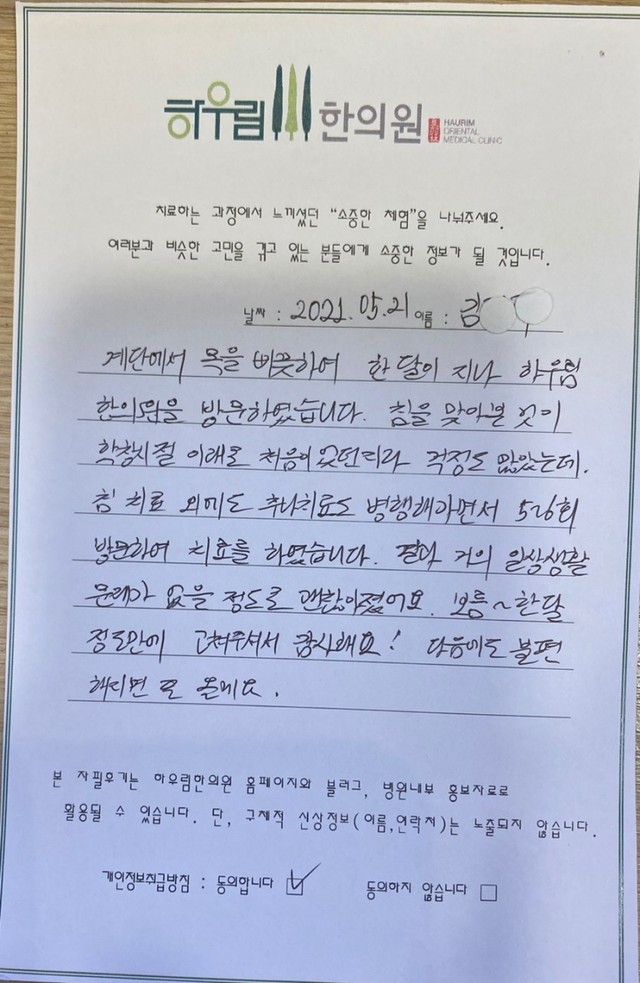 하우림 한의원 HAURIM
ORIENTAL
MEDICAL CLINIC
치료하는 과정에서 느끼셨던 "소중한 체험"을 나눠주세요.
여러분과 비슷한 고민을 겪고 있는 분들에게 소중한 정보가 될 것입니다.
날짜 : 2021.05.21 이름 : 김
계단에서 목을 삐끗하여 한 달이 지나 하우림
한의원을 방문하였습니다. 침을 맞아본 것이
학창시절 이래로 처음이었던지라 걱정도 많았는데.
침 치료 외에도 추나치료도 병행해가면서 5~6회
방문하여 치료를 하였습니다. 거의 일상생활
문제가 없을 정도로 괜찮아졌어요. 보름~한달
정도만에 고쳐주셔서 감사해요! 다음에도 불편
해지면 또 올께요.
본 자필후기는 하우림한의원 홈페이지와 블러그, 병원내부 홍보자료로
활용될 수 있습니다. 단, 구체적 신상정보(이름,연락처)는 노출되지 않습니다.
개인정보취급방침 : 동의합니다 ☑ 동의하지 않습니다 ☐